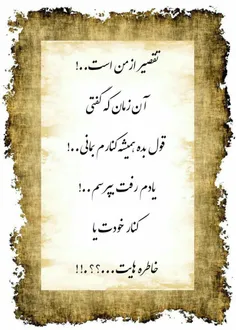 تقصیر از من است..!
آن زمان که گفتی
قول بده همیشه کنارم بمانی..!
یادم رفت بپرسم..!
کنار خودت یا
خاطره هایت...؟؟.!!